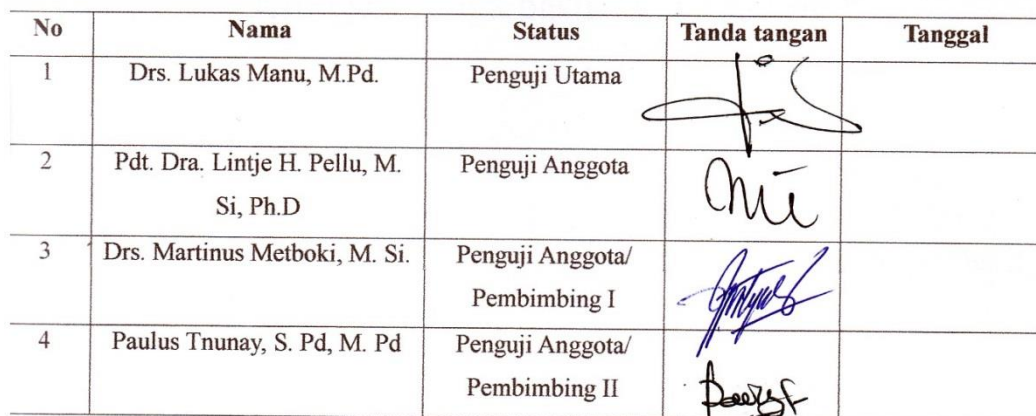 No Nama Status Tanda tangan Tanggal
1 Drs. Lukas Manu, M.Pd. Penguji Utama
2 Pdt. Dra. Lintje H. Pellu, M. Penguji Anggota
Si, Ph.D
3 Drs. Martinus Metboki, M. Si. Penguji Anggota/
Pembimbing I
4 Paulus Tnunay, S. Pd, M. Pd Penguji Anggota/
Pembimbing II